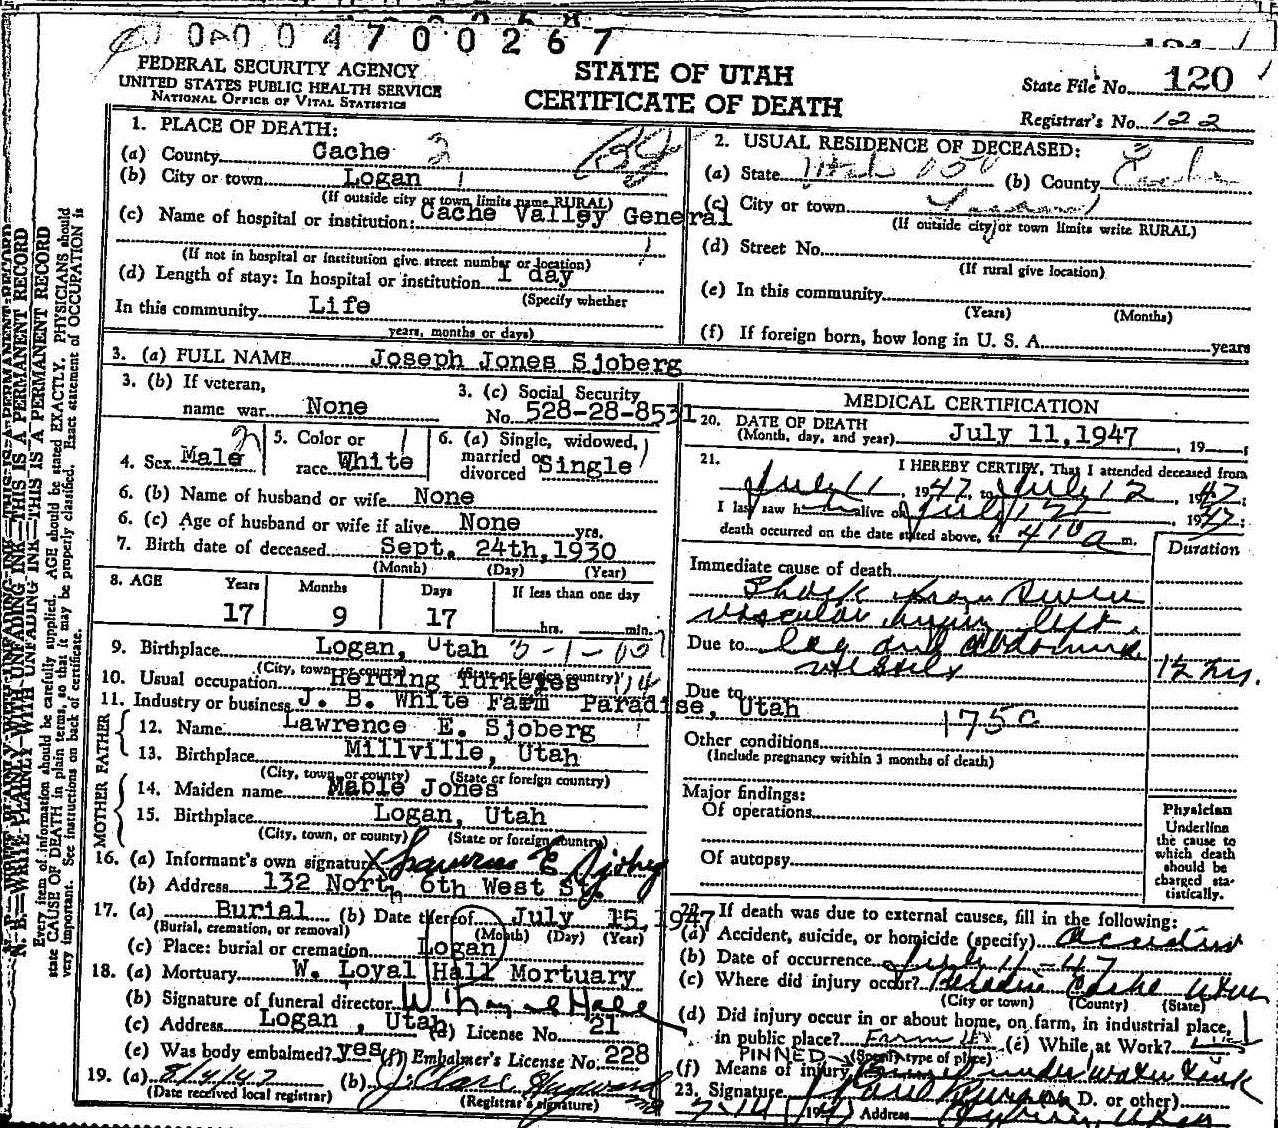 0 0 0 4 7 0 0 2 6 7
FEDERAL SECURITY AGENCY
UNITED STATES PUBLIC HEALTH SERVICE
NATIONAL OFFICE OF VITAL STATISTICS
STATE OF UTAH
CERTIFICATE OF DEATH
State File No. 120
Registrar's No. 122
1. PLACE OF DEATH:
(a) County Cache 2
(b) City or town Logan 1
(If outside city or town limits name RURAL)
(c) Name of hospital or institution: Cache Valley General
(If not in hospital or institution give street number or location)
(d) Length of stay: In hospital or institution 1 day
(Specify whether
In this community Life
years, months or days)
2. USUAL RESIDENCE OF DECEASED:
(a) State Utah (b) County Cache
(c) City or town Logan
(If outside city or town limits write RURAL)
(d) Street No.
(If rural give location)
(e) In this community
(Years) (Months)
(f) If foreign born, how long in U. S. A. years
3. (a) FULL NAME Joseph Jones Sjoberg
3. (b) If veteran, name war None
3. (c) Social Security No. 528-28-8531
4. Sex Male
5. Color or race White
6. (a) Single, widowed, married or divorced Single
6. (b) Name of husband or wife None
6. (c) Age of husband or wife if alive None yrs.
7. Birth date of deceased Sept. 24th, 1930
(Month) (Day) (Year)
8. AGE Years Months Days If less than one day
17 9 17 hrs. min.
9. Birthplace Logan, Utah
(City, town or county) (State or foreign country)
10. Usual occupation Herding Turkeyes
11. Industry or business J. B. White Farm Paradise, Utah
FATHER
12. Name Lawrence E. Sjoberg
13. Birthplace Millville, Utah
(City, town or county) (State or foreign country)
MOTHER
14. Maiden name Mable Jones
15. Birthplace Logan, Utah
(City, town, or county) (State or foreign country)
16. (a) Informant's own signature X Lawrence E Sjoberg
(b) Address 132 North 6th West St.
17. (a) Burial (b) Date thereof July 15, 1947
(Burial, cremation, or removal) (Month) (Day) (Year)
(c) Place: burial or cremation Logan
18. (a) Mortuary W. Loyal Hall Mortuary
(b) Signature of funeral director
(c) Address Logan, Utah (d) License No. 21
(e) Was body embalmed? yes (f) Embalmer's License No. 228
19. (a) 8/4/47 (b)
(Date received local registrar) (Registrar's signature)
MEDICAL CERTIFICATION
20. DATE OF DEATH
(Month, day, and year) July 11, 1947, 19
21. I HEREBY CERTIFY, That I attended deceased from
July 11, 1947, to July 12, 1947;
I last saw h alive on July 12 1947;
death occurred on the date stated above, at 410a m.
Duration
Immediate cause of death
Shock from severe
vascular injury left
Due to leg and abdominal
vessels 12 hrs.
Due to
175c
Other conditions
(Include pregnancy within 3 months of death)
Major findings:
Of operations
Of autopsy
Physician
Underline the cause to which death should be charged statistically.
22. If death was due to external causes, fill in the following:
(a) Accident, suicide, or homicide (specify) accident
(b) Date of occurrence July 11-47
(c) Where did injury occur? Paradise Cache Utah
(City or town) (County) (State)
(d) Did injury occur in or about home, on farm, in industrial place, in public place? Farm (e) While at Work?
(Specify type of place)
PINNED
(f) Means of injury under water tank
23. Signature (M. D. or other)
7-14 1947 Address
N. B.—WRITE PLAINLY WITH UNFADING INK—THIS IS A PERMANENT RECORD
Every item of information should be carefully supplied. AGE should be stated EXACTLY. PHYSICIANS should
state CAUSE OF DEATH in plain terms, so that it may be properly classified. Exact statement of OCCUPATION is
very important. See instructions on back of certificate.